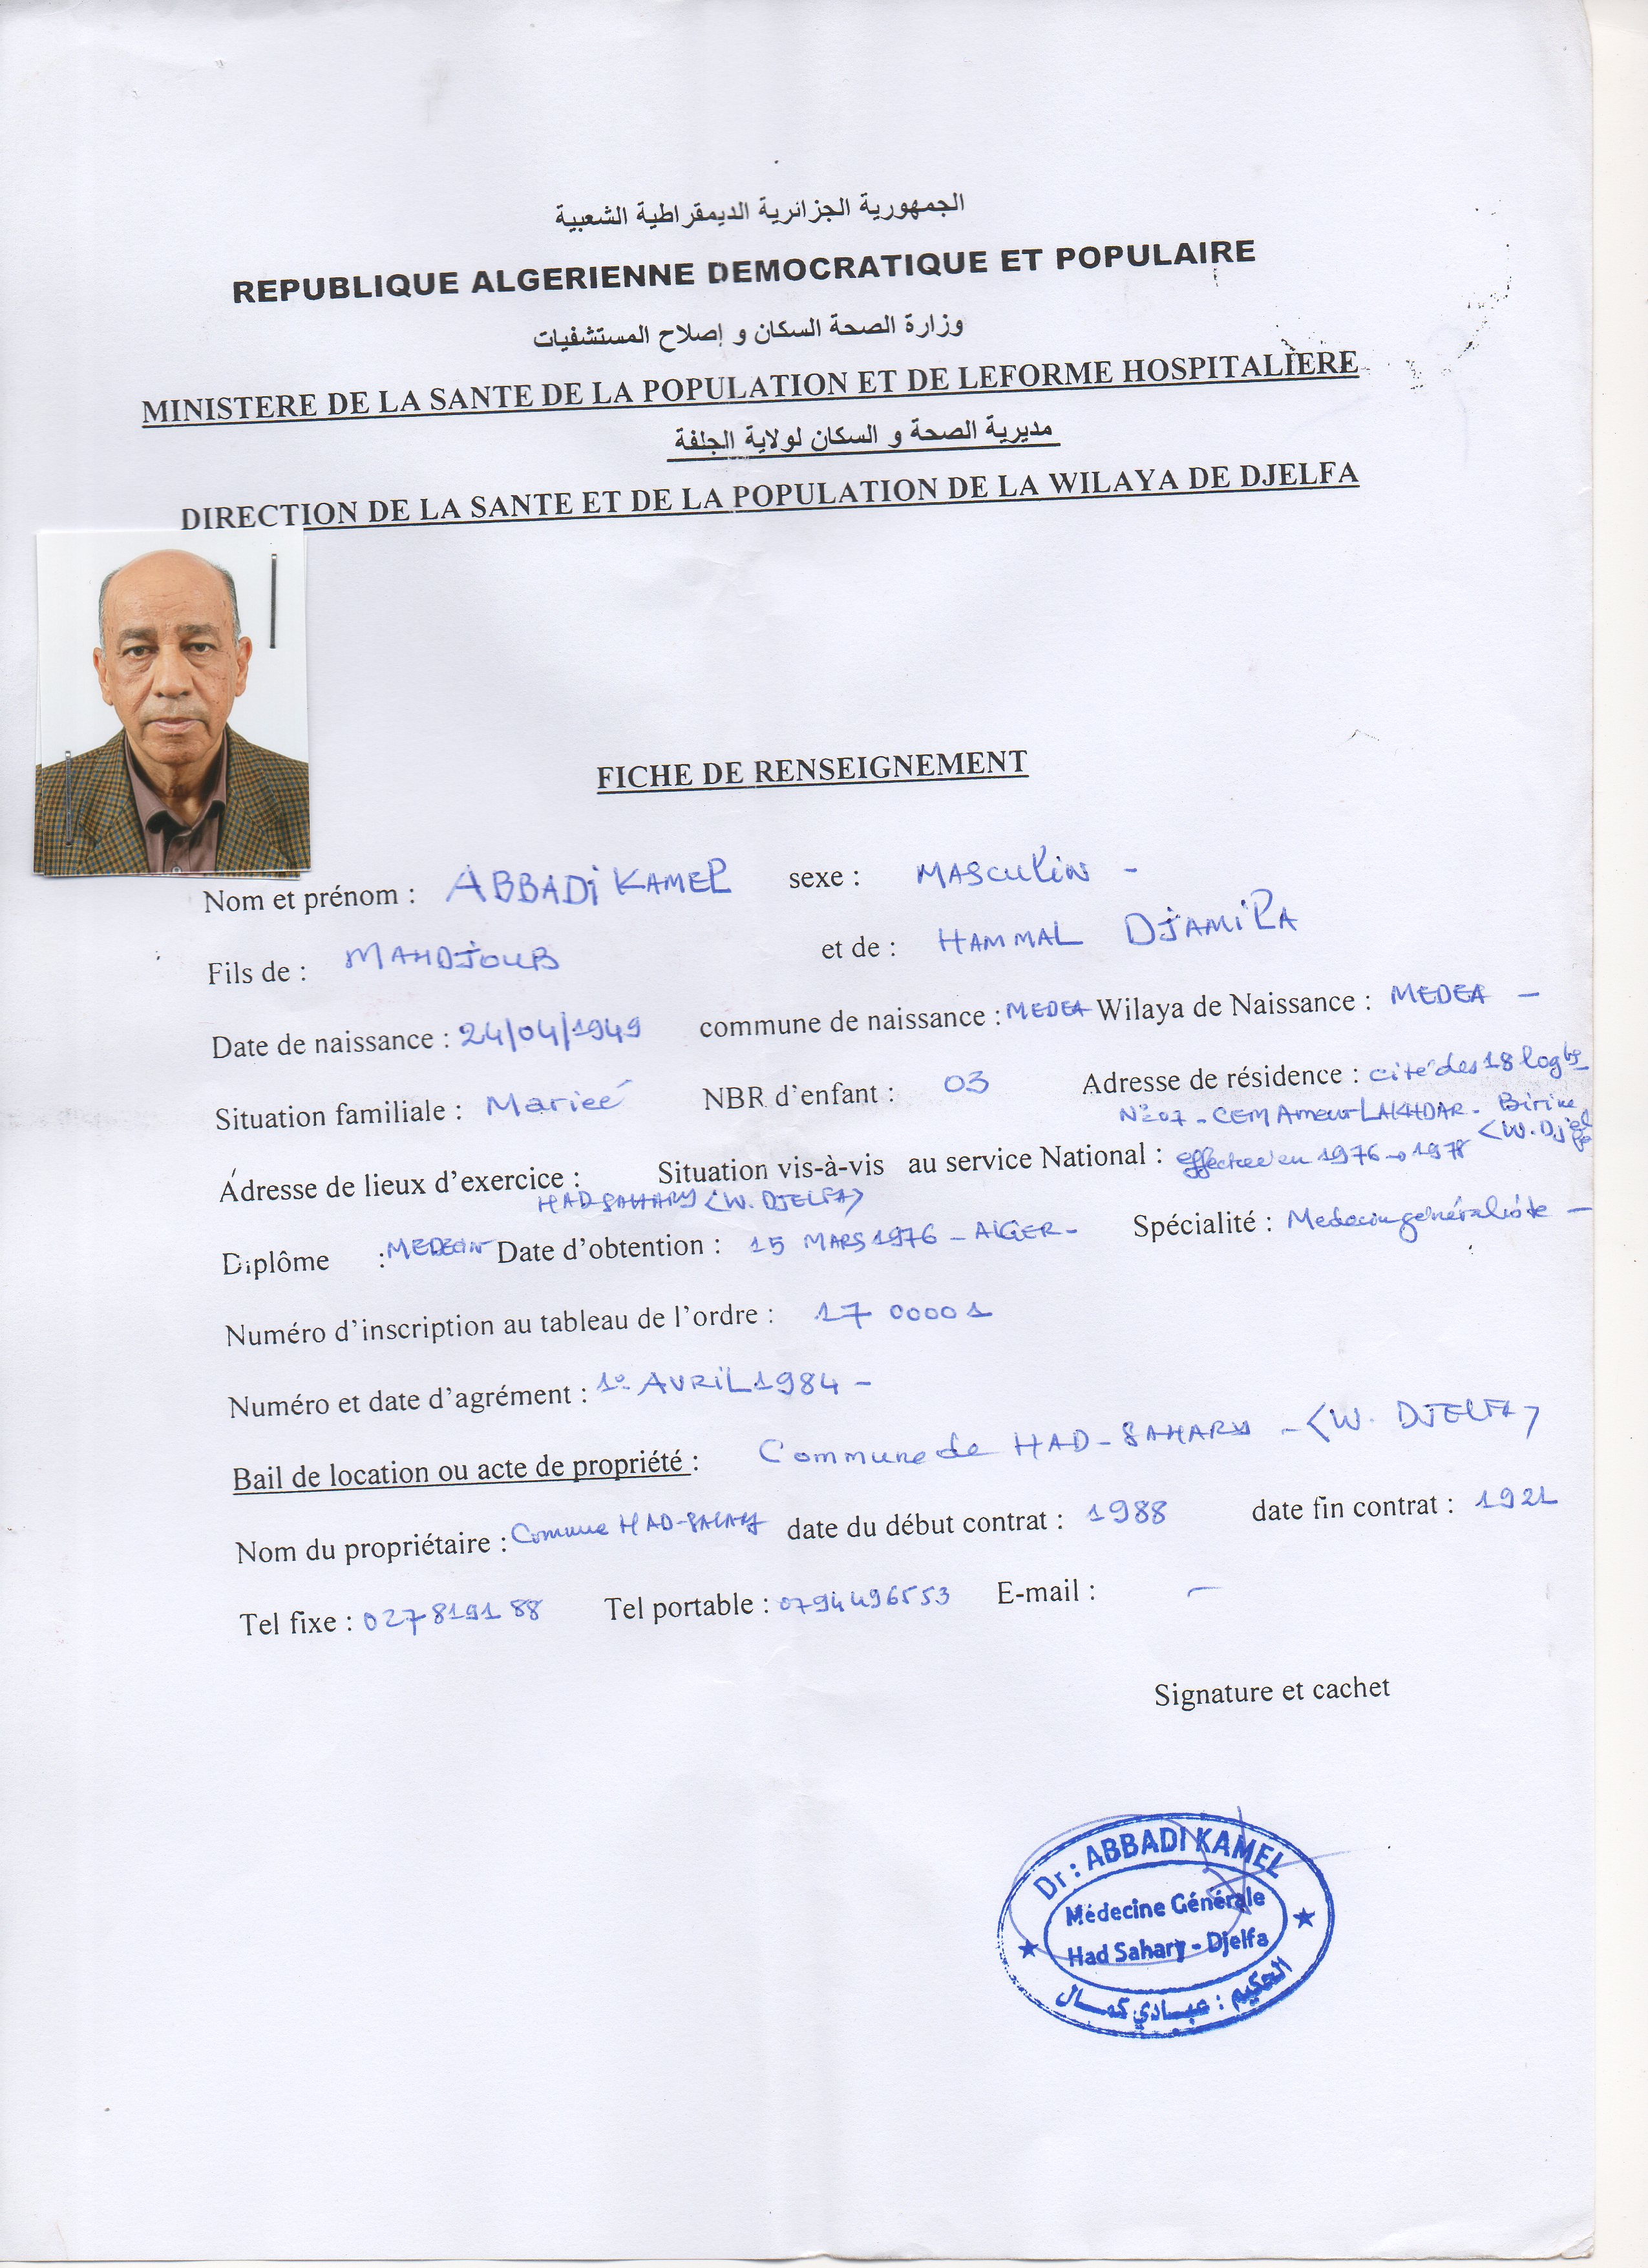 الجمهورية الجزائرية الديمقراطية الشعبية
REPUBLIQUE ALGERIENNE DEMOCRATIQUE ET POPULAIRE
وزارة الصحة السكان و إصلاح المستشفيات
MINISTERE DE LA SANTE DE LA POPULATION ET DE LEFORME HOSPITALIERE
مديرية الصحة و السكان لولاية الجلفة
DIRECTION DE LA SANTE ET DE LA POPULATION DE LA WILAYA DE DJELFA
FICHE DE RENSEIGNEMENT
Nom et prénom : ABBADI KAMEL sexe : MASCULIN -
Fils de : MAHDJOUB et de : HAMMAL DJAMILA
Date de naissance : 24/04/1949 commune de naissance : MEDEA Wilaya de Naissance : MEDEA -
Situation familiale : Marieé NBR d'enfant : 03 Adresse de résidence : cité des 18 log
N° 07 - CEM Ameur LAKHDAR - Birine
(W. Djelfa
Adresse de lieux d'exercice : Situation vis-à-vis au service National : 1976 → 1978
HAD SAHARY (W. DJELFA)
Diplôme : MEDECIN Date d'obtention : 15 MARS 1976 - ALGER - Spécialité : Medecin généraliste -
Numéro d'inscription au tableau de l'ordre : 17 00001
Numéro et date d'agrément : 1° AVRIL 1984 -
Bail de location ou acte de propriété : Commune de HAD-SAHARY - (W. DJELFA)
Nom du propriétaire : Commune HAD-SAHARY date du début contrat : 1988 date fin contrat :
Tel fixe : 027819188 Tel portable : 0794496553 E-mail : -
Signature et cachet
Dr : ABBADI KAMEL
Médecine Générale
Had Sahary - Djelfa
الحكيم : عبادي كمال